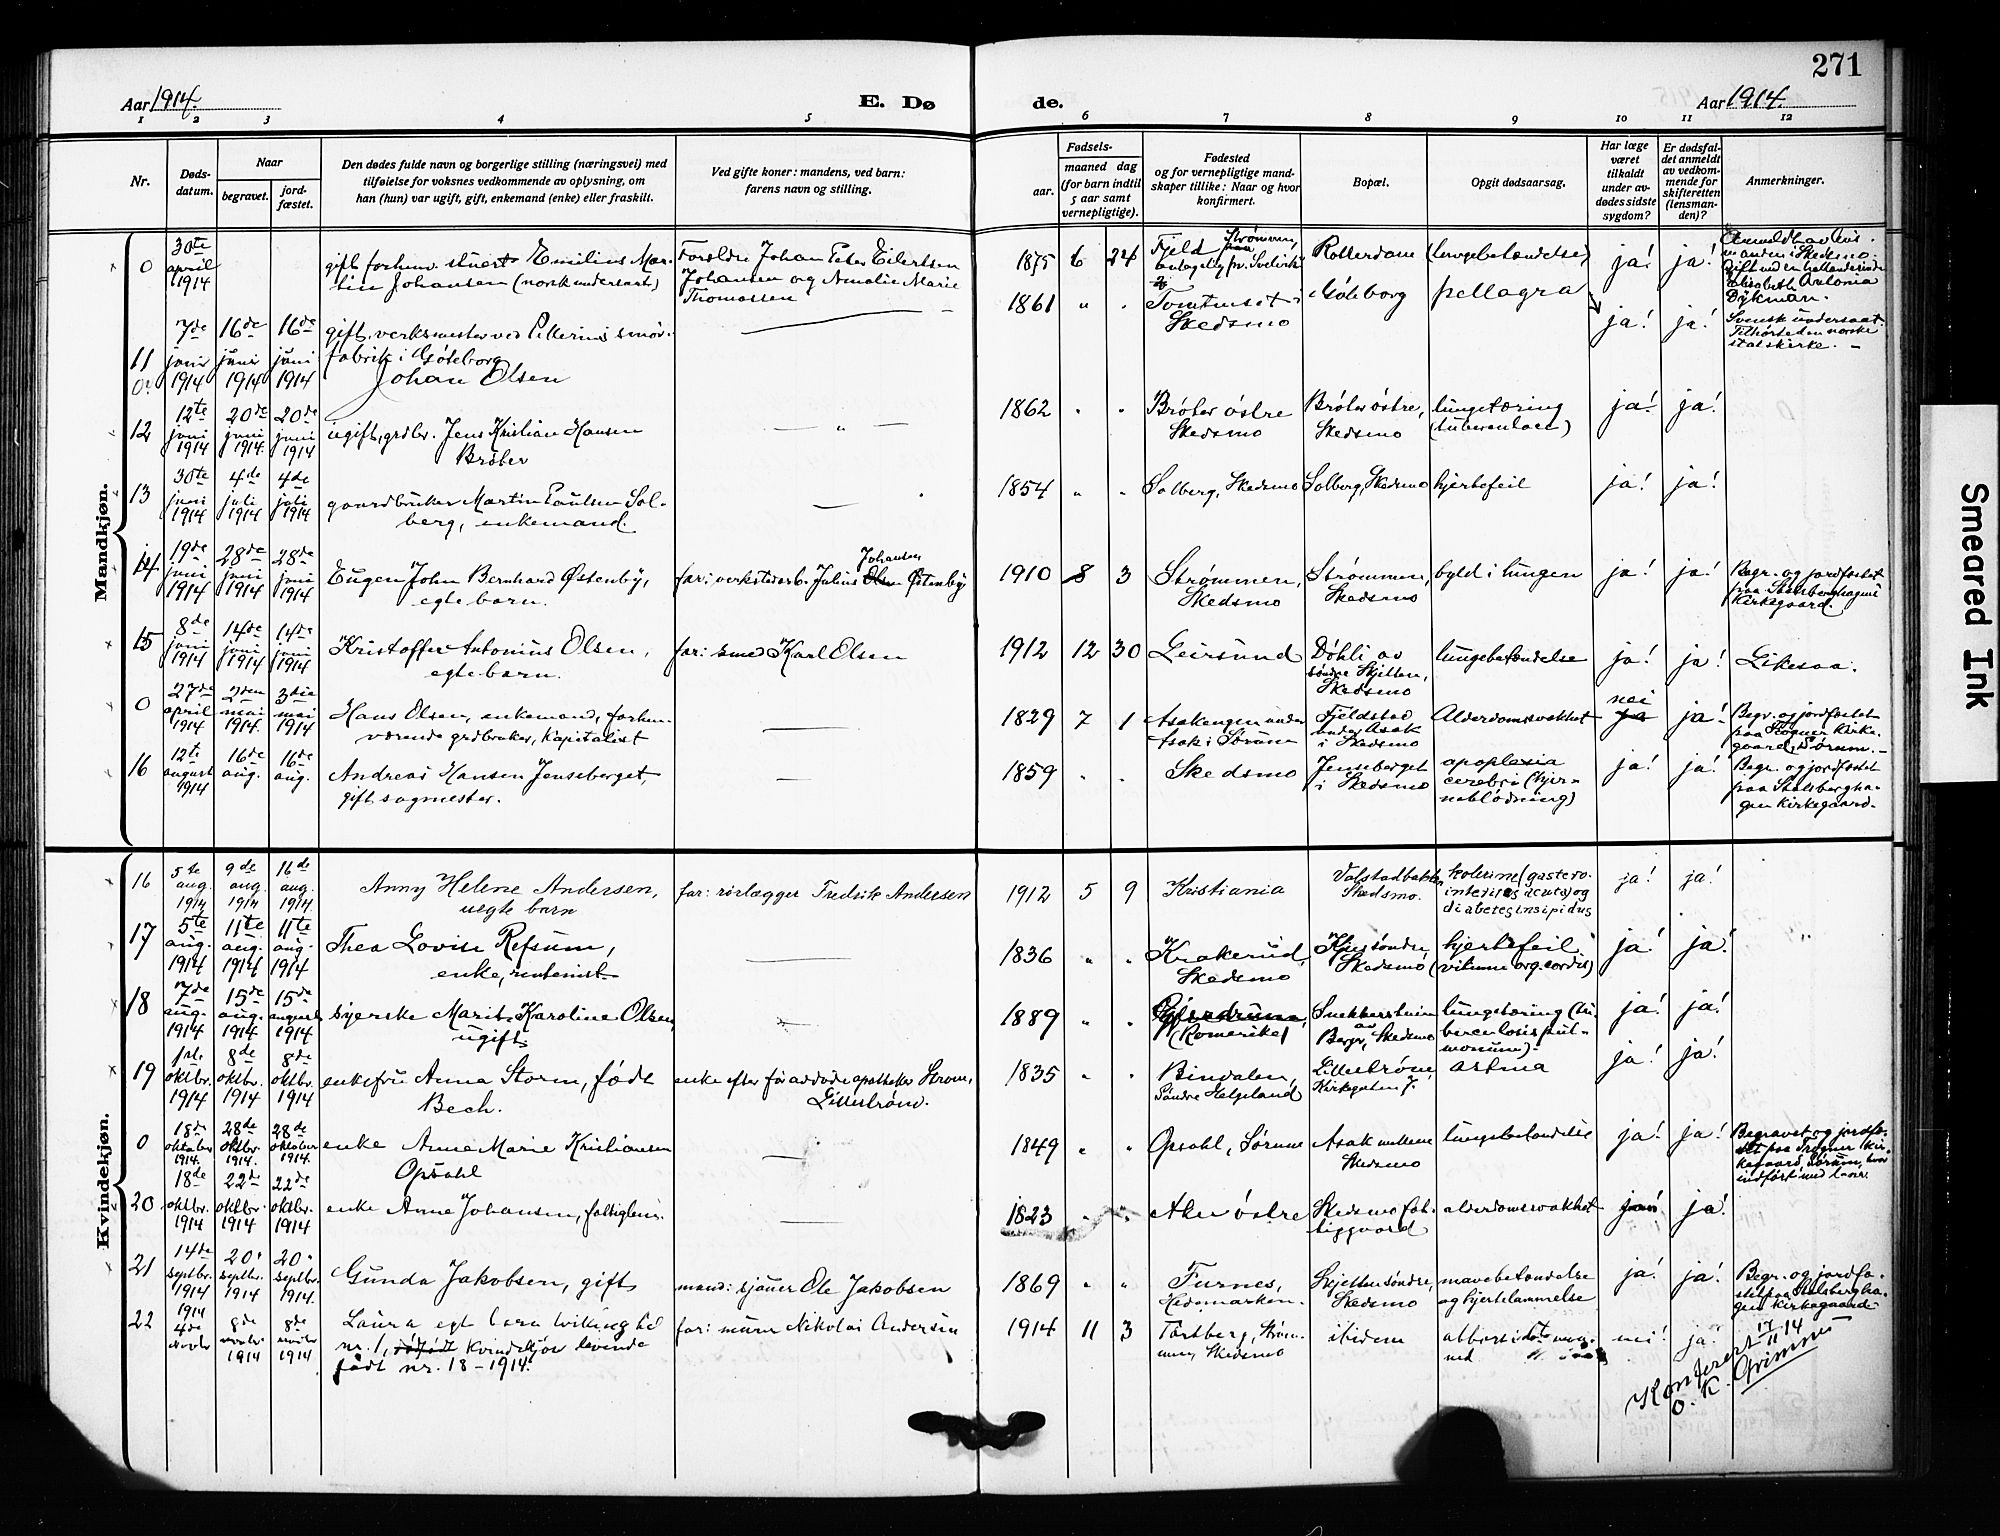 271
Aar 1914.
E. Dø
de.
Aar 1914.
1 2 3 4 5 6 7 8 9 10 11 12
Nr.
Døds-
datum.
Naar
begravet.
jord-
fæstet.
Den dødes fulde navn og borgerlige stilling (næringsvei) med
tilføielse for voksnes vedkommende av oplysning, om
han (hun) var ugift, gift, enkemand (enke) eller fraskilt.
Ved gifte koner: mandens, ved barn:
farens navn og stilling.
Fødsels-
aar.
maaned dag
(for barn indtil
5 aar samt
vernepligtige).
Fødested
og for vernepligtige mand-
skaper tillike: Naar og hvor
konfirmert.
Bopæl.
Opgit dødsaarsag.
Har læge
været
tilkaldt
under av-
dødes sidste
sygdom?
Er dødsfal-
det anmeldt
av vedkom-
mende for
skifteretten
(lensman-
den)?
Anmerkninger.
Mandkjøn.
0
30te
april
1914
gift forhenv. stuert Emilius Mar-
tin Johansen (norsk undersaat)
Foreldre Johan Peter Eilertsen
Johansen og Amalie Marie
Thomassen
1875 6 24
Fjeld
Rotterdam
(lungebetændelse)
ja! ja!
Elisabeth Antonia
Dykman.
11
7de juni 1914
16de juni 1914
16de juni 1914
gift, verksmester ved Pellerins smør-
fabrik i Gøteborg
Johan Olsen
1861 " "
Tomtunset i
Skedsmo
Gøteborg
pellagra
ja! ja!
Svensk undersaat.
Tilhørte den norske
statskirke. —
12
12te juni 1914
20de juni 1914.
20de juni 1914
ugift, grdbr. Jens Kristian Hansen
Brøter
— " —
1862 " "
Brøter østre
Skedsmo
Brøter østre,
Skedsmo
lungetæring
(tuberculose)
ja! ja!
13
30te juni 1914
4de juli 1914
4de juli 1914
gaardbruker Martin Paulsen Sol-
berg, enkemand.
1854 " "
Solberg, Skedsmo
Solberg, Skedsmo
hjertefeil
ja! ja!
14
19de juni 1914
28de juni 1914
28de juni 1914
Eugen John Bernhard Østenby,
egte barn.
Johansen
far: verkstedarb. Julius Olsen Østenby
1910 8 3
Strømmen,
Skedsmo
Strømmen,
Skedsmo
byld i lungen
ja! ja!
Begr. og jordfæstet
paa Stalsberghagens
Kirkegaard.
15
8de juni 1914
14de juni 1914
14de juni 1914
Kristoffer Antonius Olsen,
egte barn.
far: smed Karl Olsen
1912 12 30
Leirsund
Døhli av
søndre Skjetten,
Skedsmo
lungebetændelse
ja! ja!
Likesaa.
0
27de april 1914
2den mai 1914.
3die mai 1914
Hans Olsen, enkemand, forhen-
værende grdbruker, kapitalist
1829 7 1
Asakengen under
Asak i Sørum
Fjeldstad
under Asak
i Skedsmo
Alderdomssvakhet
nei
ja ja!
Begr. og jordfæstet
paa Frogner Kirke-
gaard, Sørum. —
16
12te august 1914
16de aug.
16de aug.
Andreas Hansen Jenseberget,
gift sagmester.
1859 " "
Skedsmo
Jenseberget
i Skedsmo
apoplexia
cerebri (hjer-
neblødning)
ja! ja!
Begr. og jordfæstet
paa Stalsbergha-
gen Kirkegaard.
Kvindekjøn.
16
5te aug. 1914
9de aug. 1914
16de aug. 1914
Anny Helene Andersen,
uegte barn
far: rørlægger Fredrik Andersen
1912 5 9
Kristiania
Volstadbakken
Skedsmo.
kolerine (gastero-
interitis acuta) og
diabetes insipidus
ja! ja!
17
5te aug. 1914
11te aug. 1914
11te aug. 1914
Thea Lovise Refsum,
enke, rentenist
1836 " "
Krakerud,
Skedsmo
Kjus søndre
Skedsmo
hjertefeil
(vitium org. cordis)
ja! ja!
18
7de aug. 1914
15de aug. 1914
15de august 1914
syerske Marit Karoline Olsen,
ugift
1889 " "
Gjerdrum,
(Romerike)
Snekkersheim
av
Berger, Skedsmo
lungetæring (tu-
berculosis pul-
monum)
ja! ja!
19
1ste oktbr. 1914
8de oktbr. 1914
8de oktbr. 1914
enkefru Anna Storm, født
Bech.
enke efter før avdøde apotheker Storm,
Lillestrøm.
1835 " "
Bindalen,
Søndre Helgeland
Lillestrøm,
Kirkegaten 7.
astma
ja! ja!
0
18de oktober 1914.
28de oktbr. 1914.
28de oktober 1914.
enke Anne Marie Kristiansen
Opsahl
1849 " "
Opsahl, Sørum
Asak mellem
Skedsmo
lungebetændelse
ja! ja!
Begravet og jordfæ-
stet paa Frogner Kir-
kegaard, Sørum, hvor
indført med l.nr.
20
18de oktbr. 1914
22de oktbr. 1914
22de oktbr. 1914
enke Anne Johansen, fattiglem.
1823 " "
Aker østre
Skedsmo fat-
tiggaard
alderdomssvakhet
ja!
21
14de septbr. 1914
20. septbr. 1914
20. septbr. 1914.
Gunda Jakobsen, gift
mand: sjauer Ole Jakobsen
1869 " "
Furnes,
Hedemarken.
Skjetten søndre,
Skedsmo
mavebetændelse
og hjertelammelse
ja! ja!
Begr. og jordfæ-
stet paa Stalsbergha-
gen Kirkegaard
22
1914
4de novbr
8de novbr 1914
8de novbr 1914
Laura egt barn tvilling til
nr. 1, dødfødt kvindekjøn levende
født nr. 18 – 1914.
far: murer Nikolai Andersen
1914 11 3
Torsberg, Strøm-
men, Skedsmo
ibidem
nei! ja!
Konferert 17/11 14
O. K. Grimnes
Smeared Ink